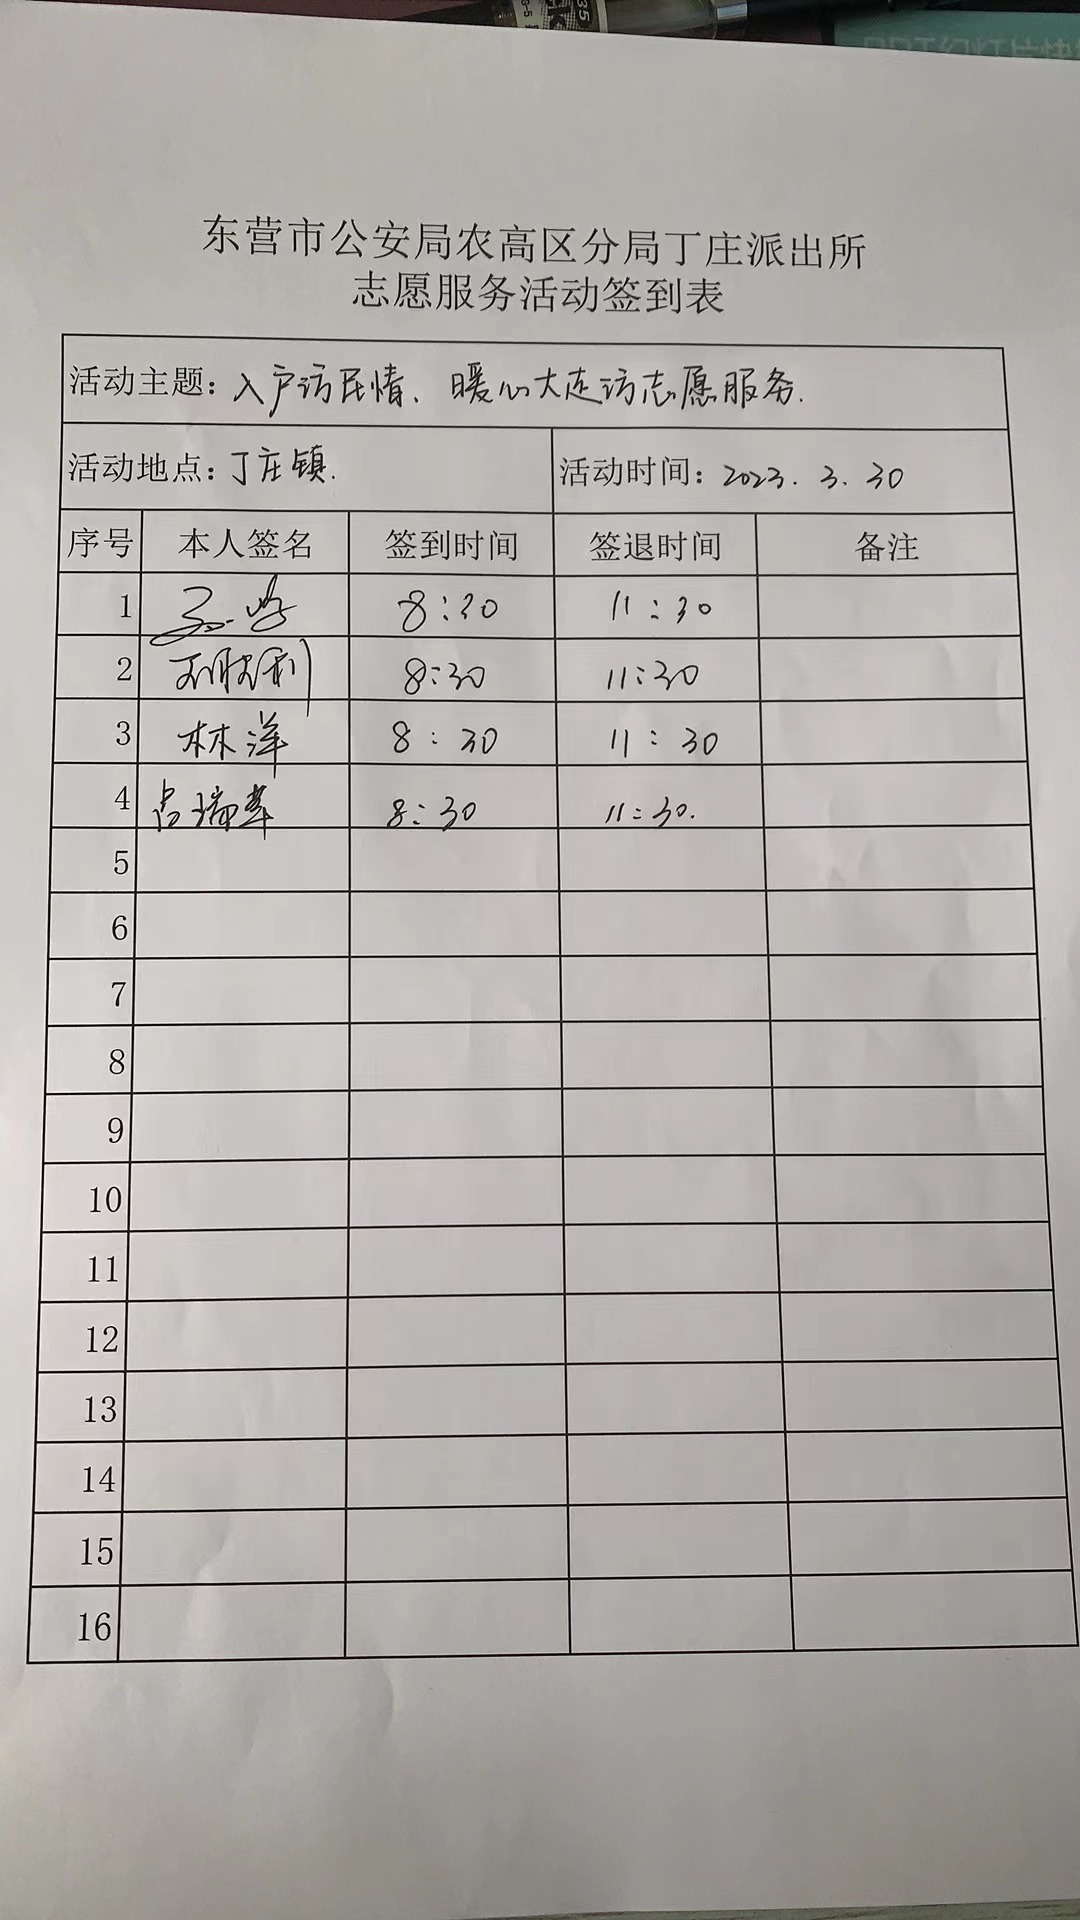 东营市公安局农高区分局丁庄派出所
志愿服务活动签到表
活动主题：入户访民情、暖心大走访志愿服务.
活动地点：丁庄镇. 活动时间：2023.3.30
序号 本人签名 签到时间 签退时间 备注
1 8:30 11:30
2 8:30 11:30
3 林洋 8:30 11:30
4 8:30 11:30.
5
6
7
8
9
10
11
12
13
14
15
16